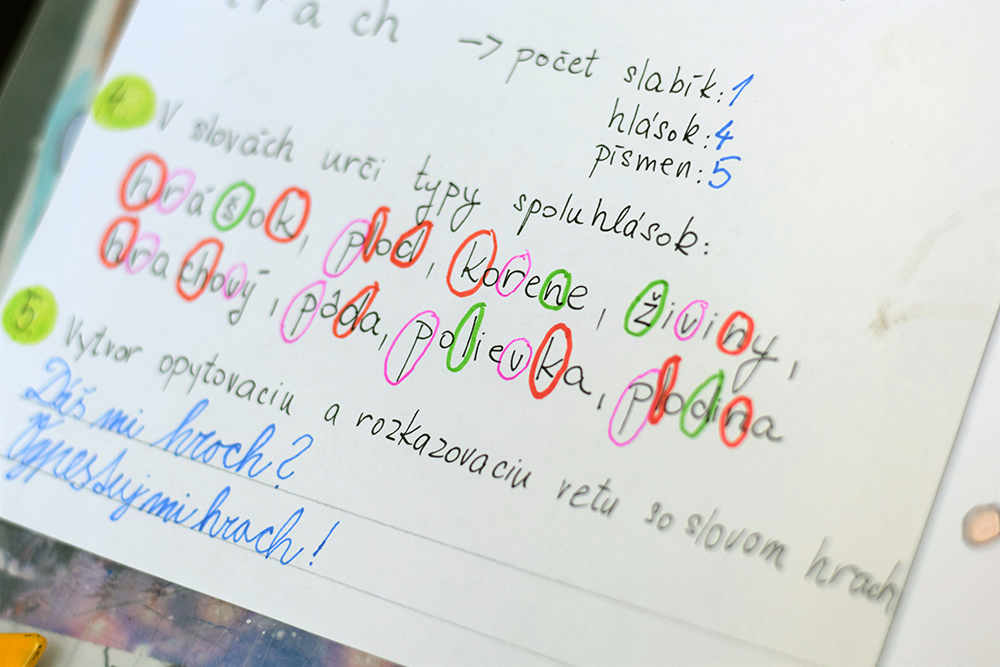 r a ch
-> počet slabík: 1
hlások: 4
písmen: 5
4. V slovách urči typy spoluhlások:
hrášok, plod, korene, živiny,
hrachový, pôda, polievka, plodina
5. Vytvor opytovaciu a rozkazovaciu vetu so slovom hrach
Dáš mi hroch?
Vypestuj mi hrach!